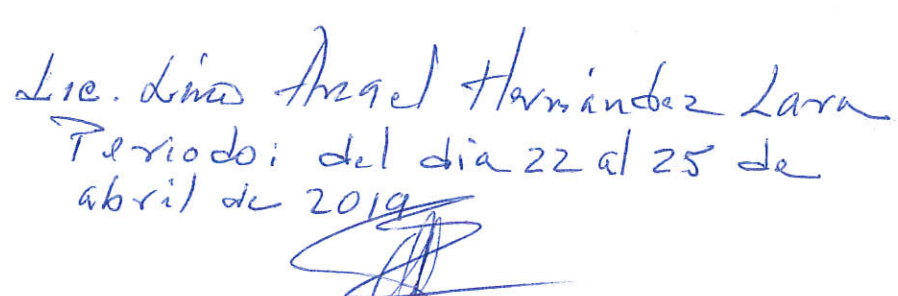 Lic. Lino Angel Hernández Lara
Periodo: del dia 22 al 25 de
abril de 2019